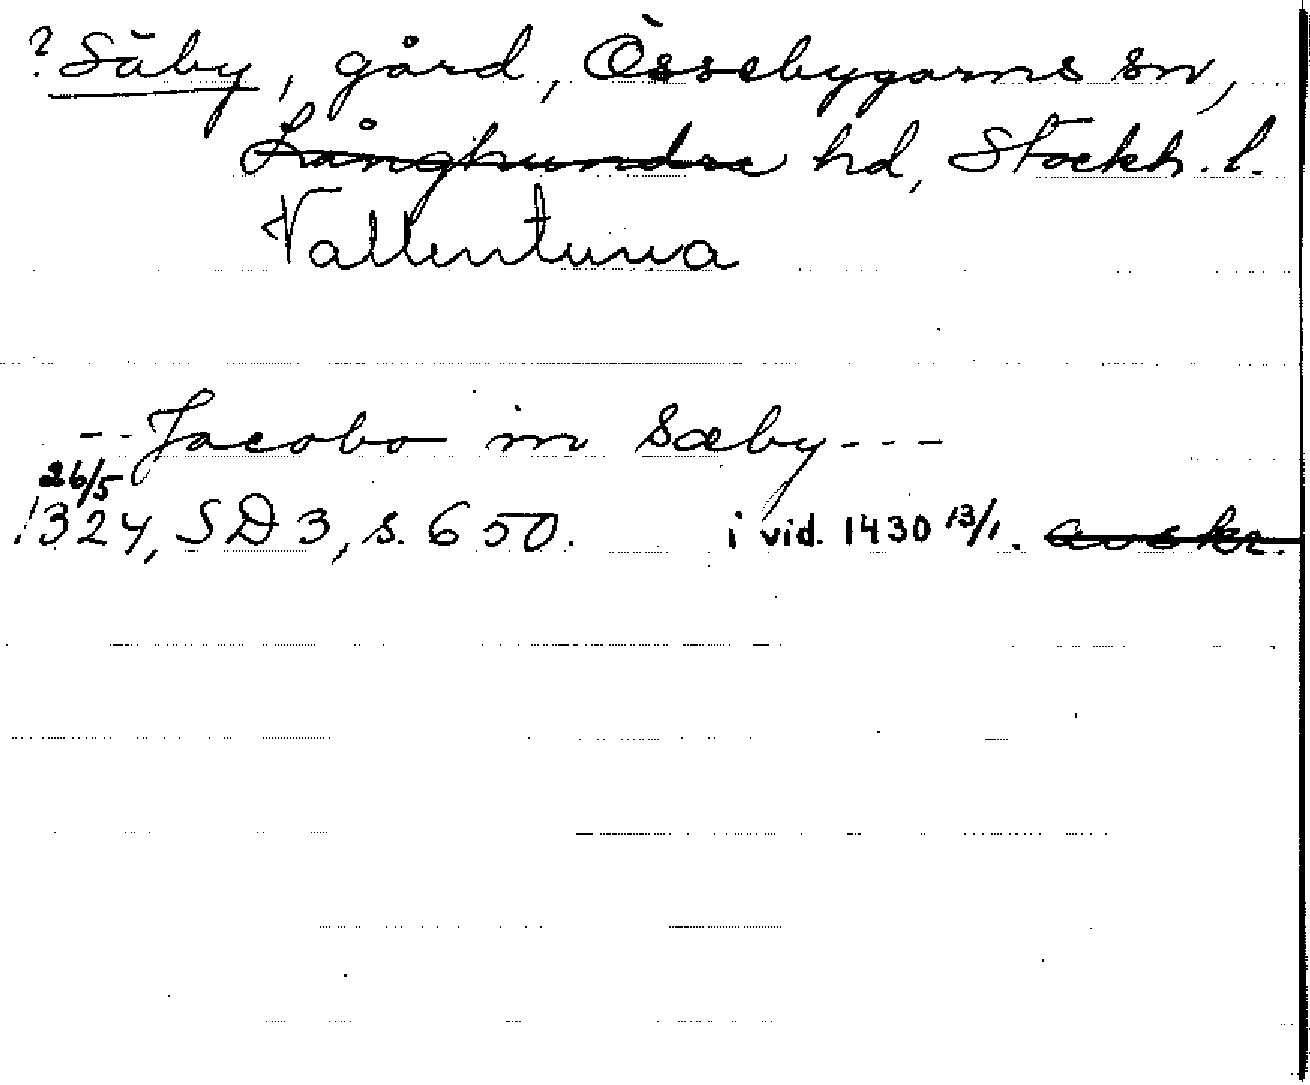 ? Säby, gård, Össebygarns sn,
Långhundra hd, Stockh. l.
Vallentuna
- - Jacobo in Sæby - - -
26/5
1324, SD 3, s. 650. i vid. 1430 13/1. avskr.